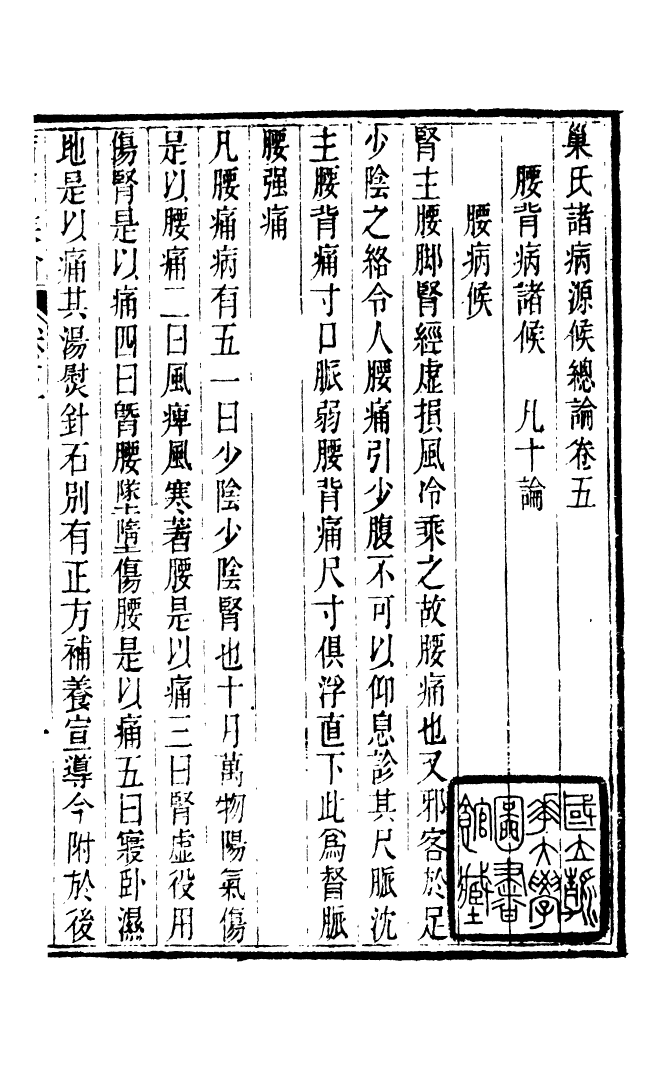 巢氏諸病源候總論卷五
腰背病諸候　凡十論
腰病候
腎主腰脚腎經虛損風冷乘之故腰痛也又邪客於足
少陰之絡令人腰痛引少腹不可以仰息診其尺脈沈
主腰背痛寸口脈弱腰背痛尺寸俱浮直下此爲督脈
腰强痛
凡腰痛病有五一曰少陰少陰腎也十月萬物陽氣傷
是以腰痛二曰風痺風寒著腰是以痛三曰腎虛役用
傷腎是以痛四曰䐴腰墜墮傷腰是以痛五曰寢卧濕
地是以痛其湯熨針石別有正方補養宣導今附於後
國立
大學
圖書
館藏